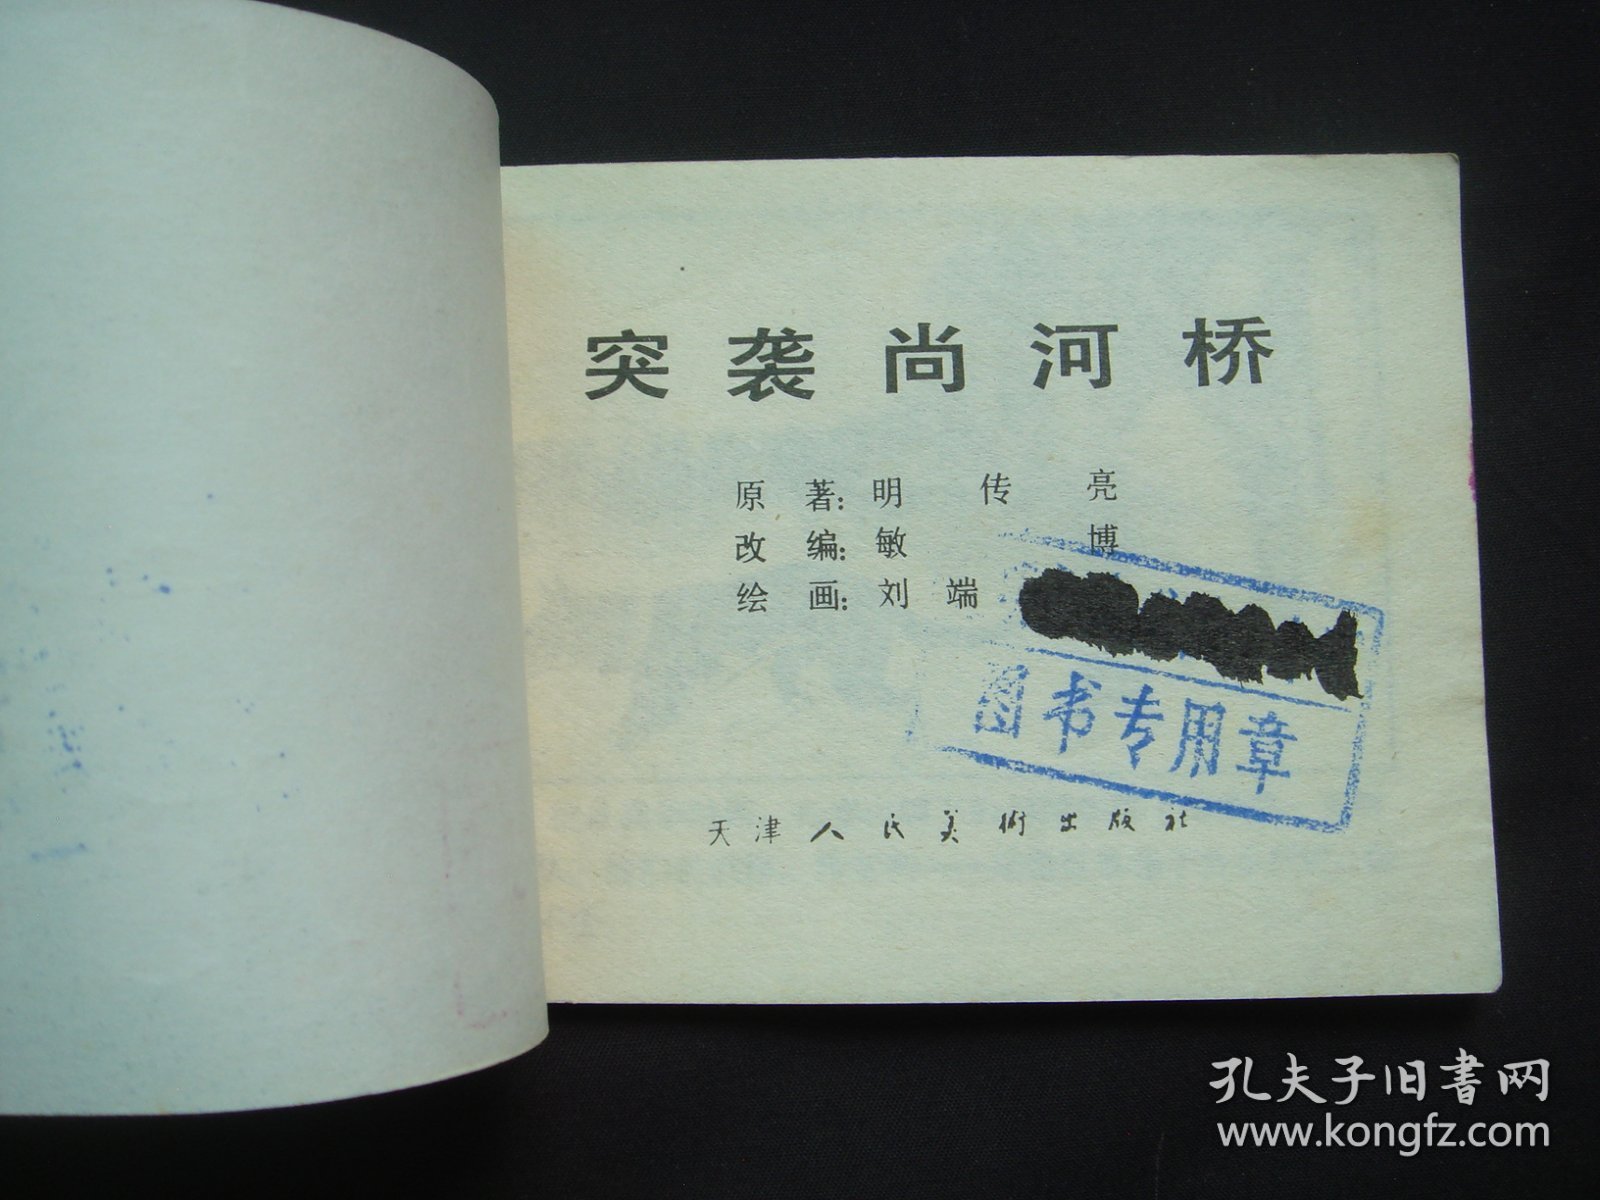 突袭尚河桥
原著：明传亮
改编：敏博
绘画：刘端
图书专用章
天津人民美術出版社
孔夫子旧書网
www.kongfz.com